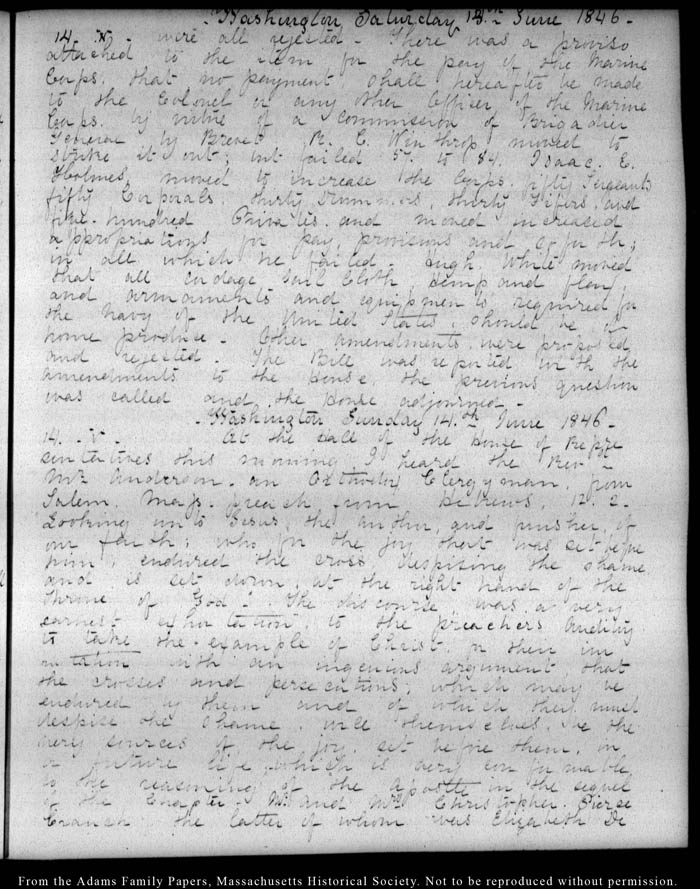 Washington Saturday 13th June 1846-
14. were all rejected - There was a proviso
attached to the item for the pay of the Marine
Corps. that no payment shall hereafter be made
to the Colonel or any other Officer of the Marine
Corps. by virtue of a Commission of Brigadier
General by Brevet R. C. Winthrop moved to
strike it out; but failed 57. to 84. Isaac. E.
Holmes moved to increase the Corps. fifty Sergeants
fifty Corporals. thirty Drummers, thirty Fifers. and
five hundred Privates. and moved increased
appropriations for pay, provisions and so forth;
in all which he failed - Hugh. White moved
that all Cordage Sail Cloth, Hemp and flax,
and armaments and equipments required for
the Navy of the United States, should be of
home produce - Other amendments were proposed
and rejected. The Bill was reported with the
amendments to the House, the previous question
was called and the House adjourned -
Washington Sunday 14.th June 1846-
14. V. At the Hall of the House of Repre
sentatives this morning I heard the Revd
Mr Anderson. an Orthodox Clergyman, from
Salem. Mass. preach from Hebrews. 12. 2.
Looking unto Jesus, the author, and finisher, of
our faith; who, for the joy that was set before
him; endured the cross despising the shame
and is set down, at the right hand of the
throne of God. The discourse was a very
earnest exhortation, to the preachers auditory
to take the example of Christ for their im
itation with an ingenious argument that
the crosses and persecutions, which may be
endured by them and of which they must
despise the Shame, were themselves. the
very sources of the joy. set before them, in
a future life, which is very conformable,
to the reasoning of the Apostle in the sequel
of the Chapter. Mr and Mrs Christopher. Pierse
Cranch the latter of whom was Elizabeth De
From the Adams Family Papers, Massachusetts Historical Society. Not to be reproduced without permission.